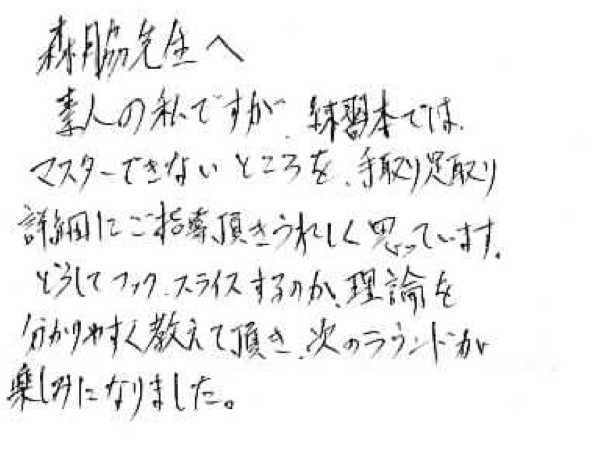 森脇先生へ
素人の私ですが、練習本では、
マスターできないところを、手取り足取り
詳細にご指導頂きうれしく思っています。
どうしてフック、スライスするのか、理論を
分かりやすく教えて頂き、次のラウンドが
楽しみになりました。